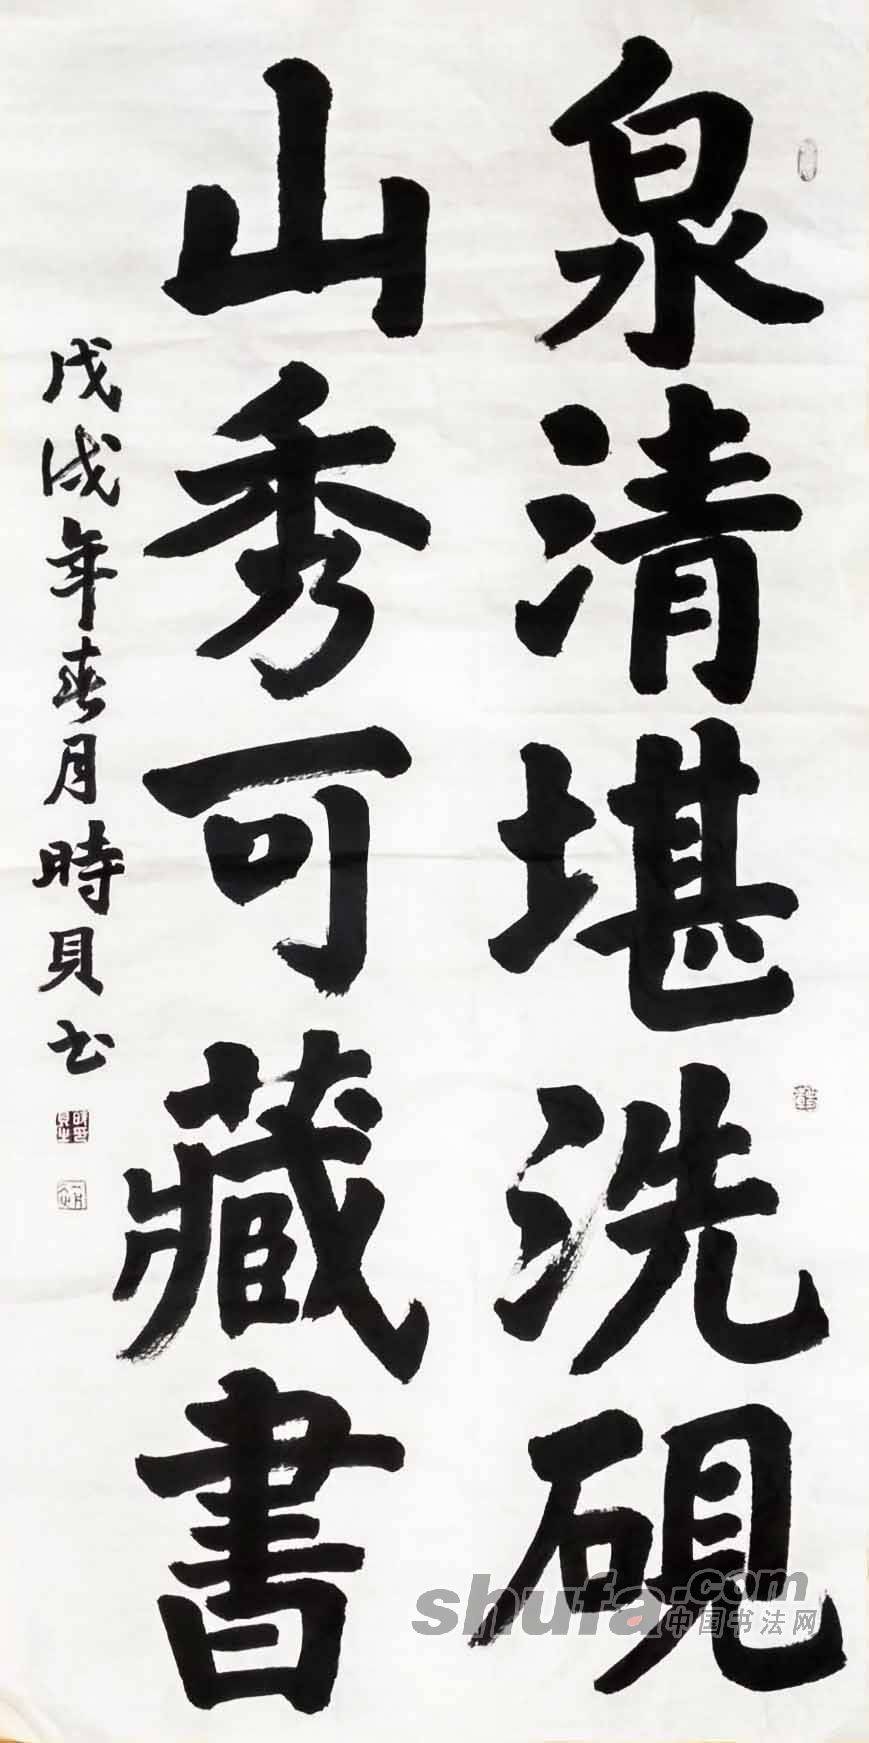 泉清堪洗硯
山秀可藏書
戊戌年春月時貝书
shufa.com
中国书法网